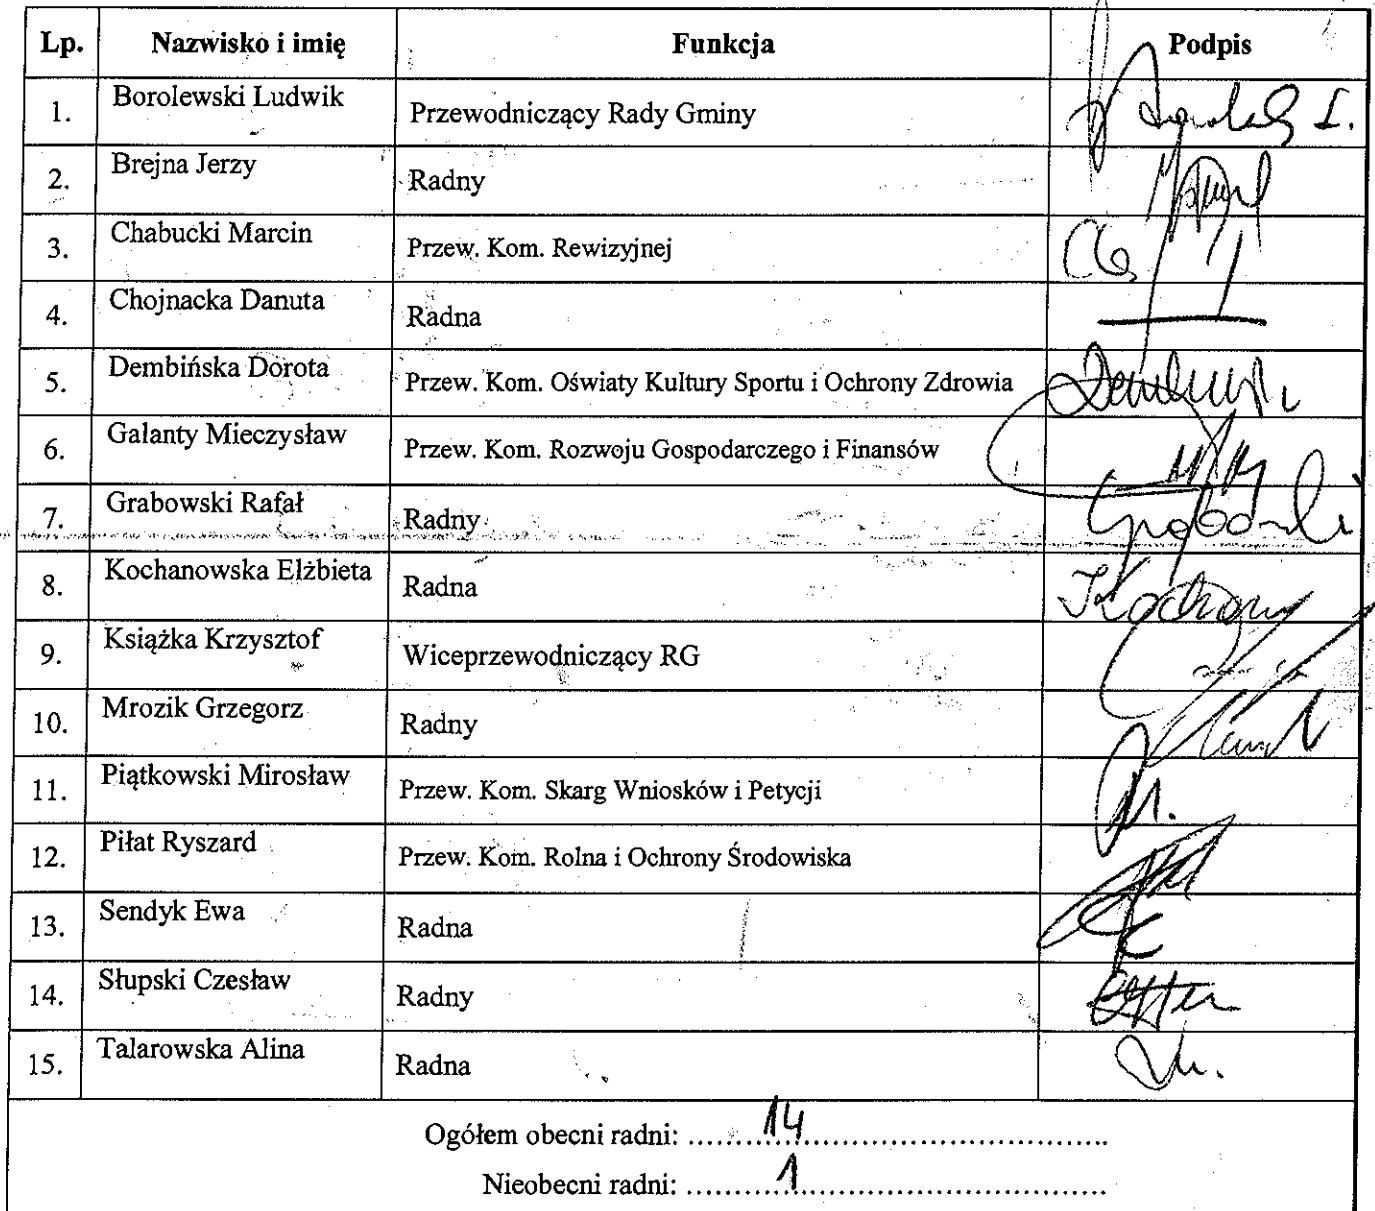 Lp. Nazwisko i imię Funkcja Podpis
1. Borolewski Ludwik Przewodniczący Rady Gminy
2. Brejna Jerzy Radny
3. Chabucki Marcin Przew. Kom. Rewizyjnej
4. Chojnacka Danuta Radna
5. Dembińska Dorota Przew. Kom. Oświaty Kultury Sportu i Ochrony Zdrowia
6. Galanty Mieczysław Przew. Kom. Rozwoju Gospodarczego i Finansów
7. Grabowski Rafał Radny
8. Kochanowska Elżbieta Radna
9. Książka Krzysztof Wiceprzewodniczący RG
10. Mrozik Grzegorz Radny
11. Piątkowski Mirosław Przew. Kom. Skarg Wniosków i Petycji
12. Piłat Ryszard Przew. Kom. Rolna i Ochrony Środowiska
13. Sendyk Ewa Radna
14. Słupski Czesław Radny
15. Talarowska Alina Radna
Ogółem obecni radni: 14
Nieobecni radni: 1